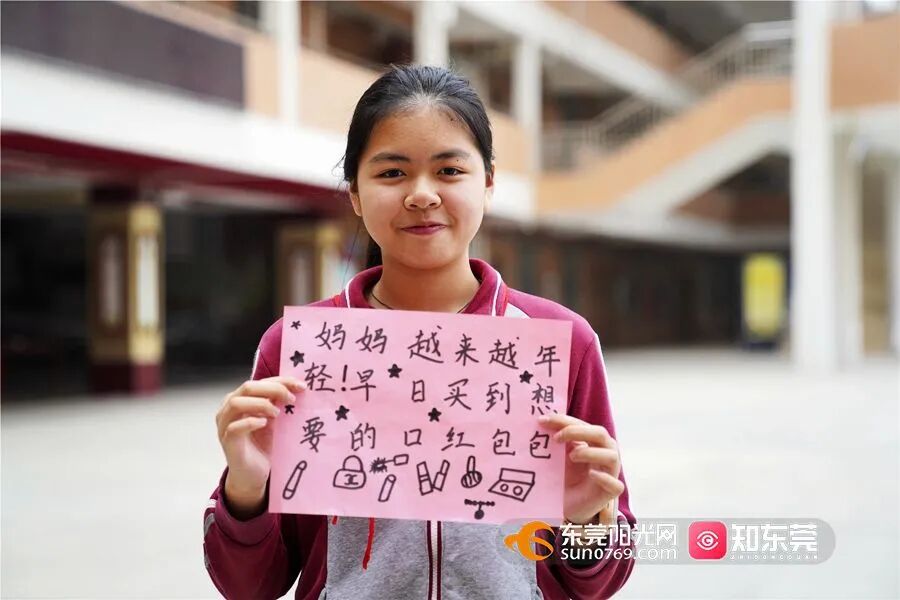 妈妈 越来越年
轻！早日买到想
要的口红包包
东莞阳光网
sun0769.com
知东莞
ZHIDONGGUAN